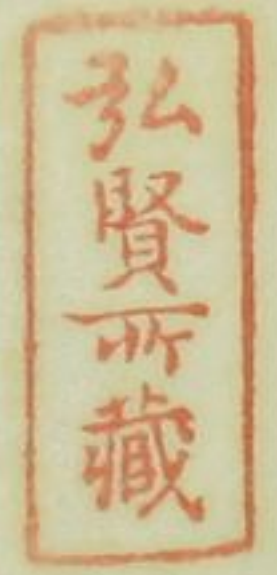 弘賢所藏